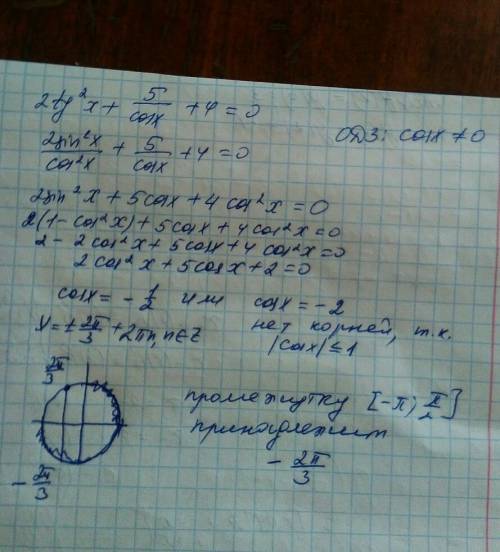 2tg²x + 5/cosx + 4 = 0
ОДЗ: cosx ≠ 0
2sin²x/cos²x + 5/cosx + 4 = 0
2sin²x + 5cosx + 4cos²x = 0
2(1-cos²x) + 5cosx + 4cos²x = 0
2 - 2cos²x + 5cosx + 4cos²x = 0
2cos²x + 5cosx + 2 = 0
cosx = -1/2 или cosx = -2
x = ± 2π/3 + 2πn, n∈Z
нет корней, т.к.
|cosx| ≤ 1
2π/3
промежутку [-π; π/2]
принадлежит
-2π/3
-2π/3